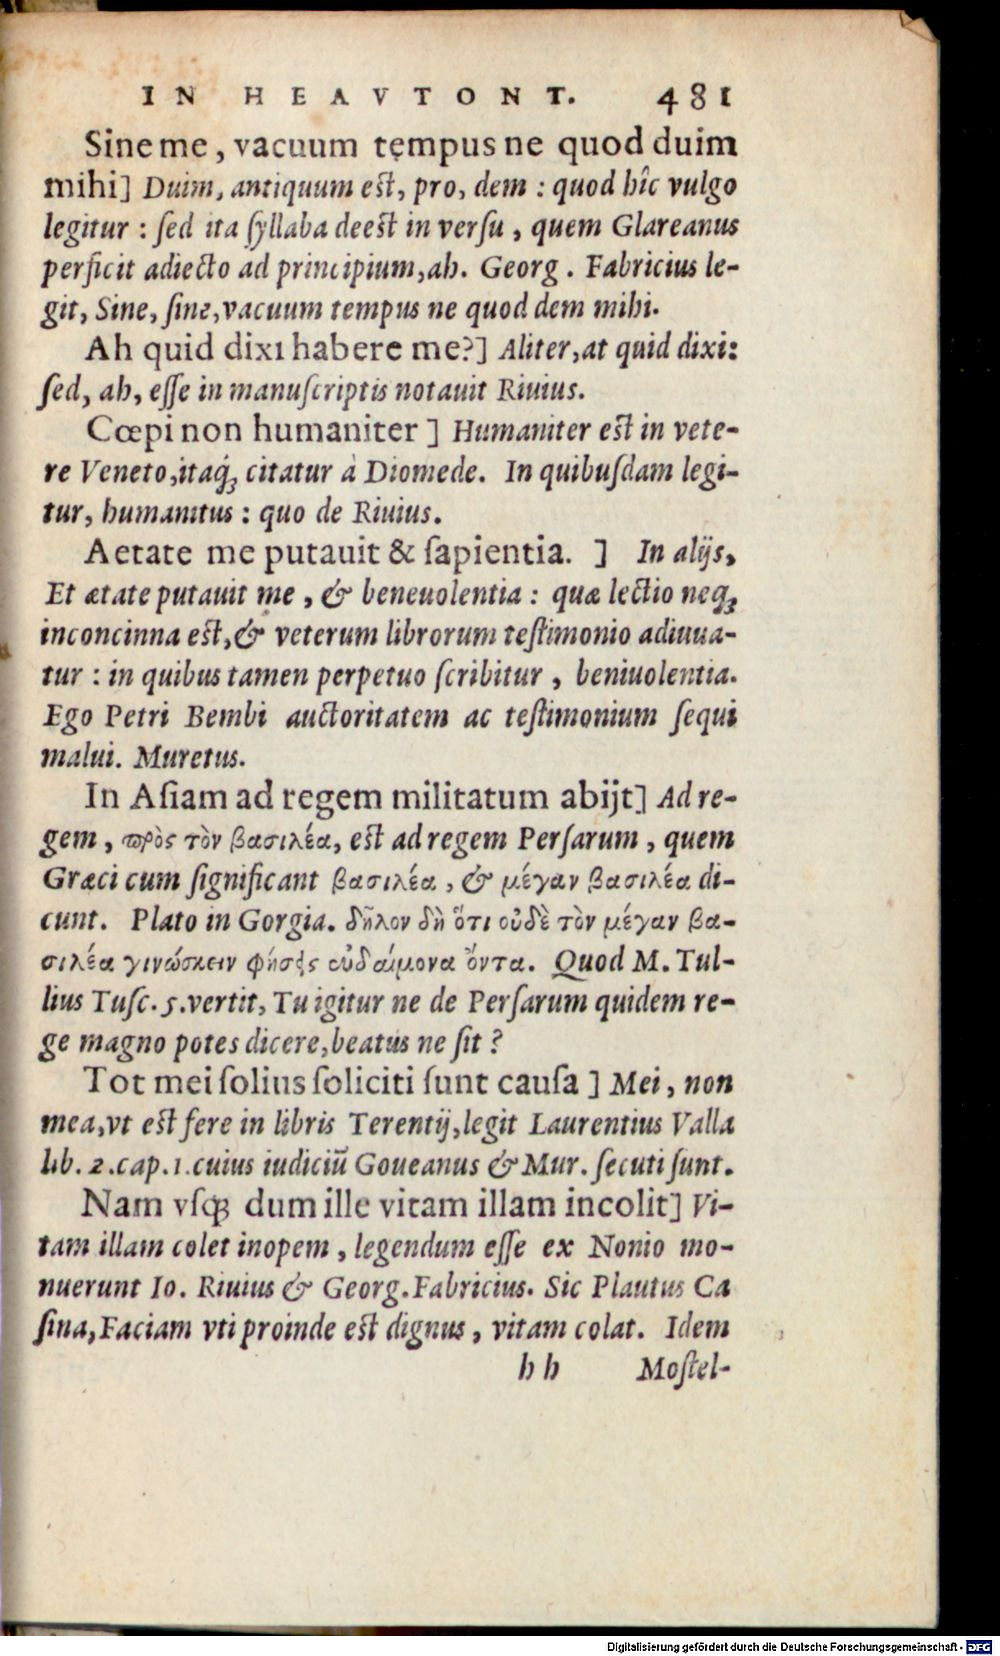 IN HEAVTONT. 481
Sine me, vacuum tempus ne quod duim
mihi] Duim, antiquum est, pro, dem : quod hîc vulgo
legitur : sed ita syllaba deest in versu, quem Glareanus
perficit adiecto ad principium, ah. Georg. Fabricius le-
git, Sine, sine, vacuum tempus ne quod dem mihi.
Ah quid dixi habere me?] Aliter, at quid dixi:
sed, ah, esse in manuscriptis notauit Riuius.
Cœpi non humaniter ] Humaniter est in vete-
re Veneto, itaq́; citatur à Diomede. In quibusdam legi-
tur, humanitus : quo de Riuius.
Aetate me putauit & sapientia. ] In alijs,
Et ætate putauit me, & beneuolentia : quæ lectio neq;
inconcinna est, & veterum librorum testimonio adiuua-
tur : in quibus tamen perpetuo scribitur, beniuolentia.
Ego Petri Bembi auctoritatem ac testimonium sequi
malui. Muretus.
In Asiam ad regem militatum abijt] Ad re-
gem, πρὸς τὸν βασιλέα, est ad regem Persarum, quem
Græci cum significant βασιλέα, & μέγαν βασιλέα di-
cunt. Plato in Gorgia. δῆλον δὴ ὅτι οὐδὲ τὸν μέγαν βα-
σιλέα γινώσκειν φήσεις εὐδαίμονα ὄντα. Quod M. Tul-
lius Tusc. 5. vertit, Tu igitur ne de Persarum quidem re-
ge magno potes dicere, beatus ne sit ?
Tot mei solius soliciti sunt causa ] Mei, non
mea, vt est fere in libris Terentij, legit Laurentius Valla
lib. 2. cap. 1. cuius iudiciũ Goueanus & Mur. secuti sunt.
Nam vsq; dum ille vitam illam incolit] Vi-
tam illam colet inopem, legendum esse ex Nonio mo-
nuerunt Io. Riuius & Georg. Fabricius. Sic Plautus Ca
sina, Faciam vti proinde est dignus, vitam colat. Idem
hh Mostel-
Digitalisierung gefördert durch die Deutsche Forschungsgemeinschaft - DFG